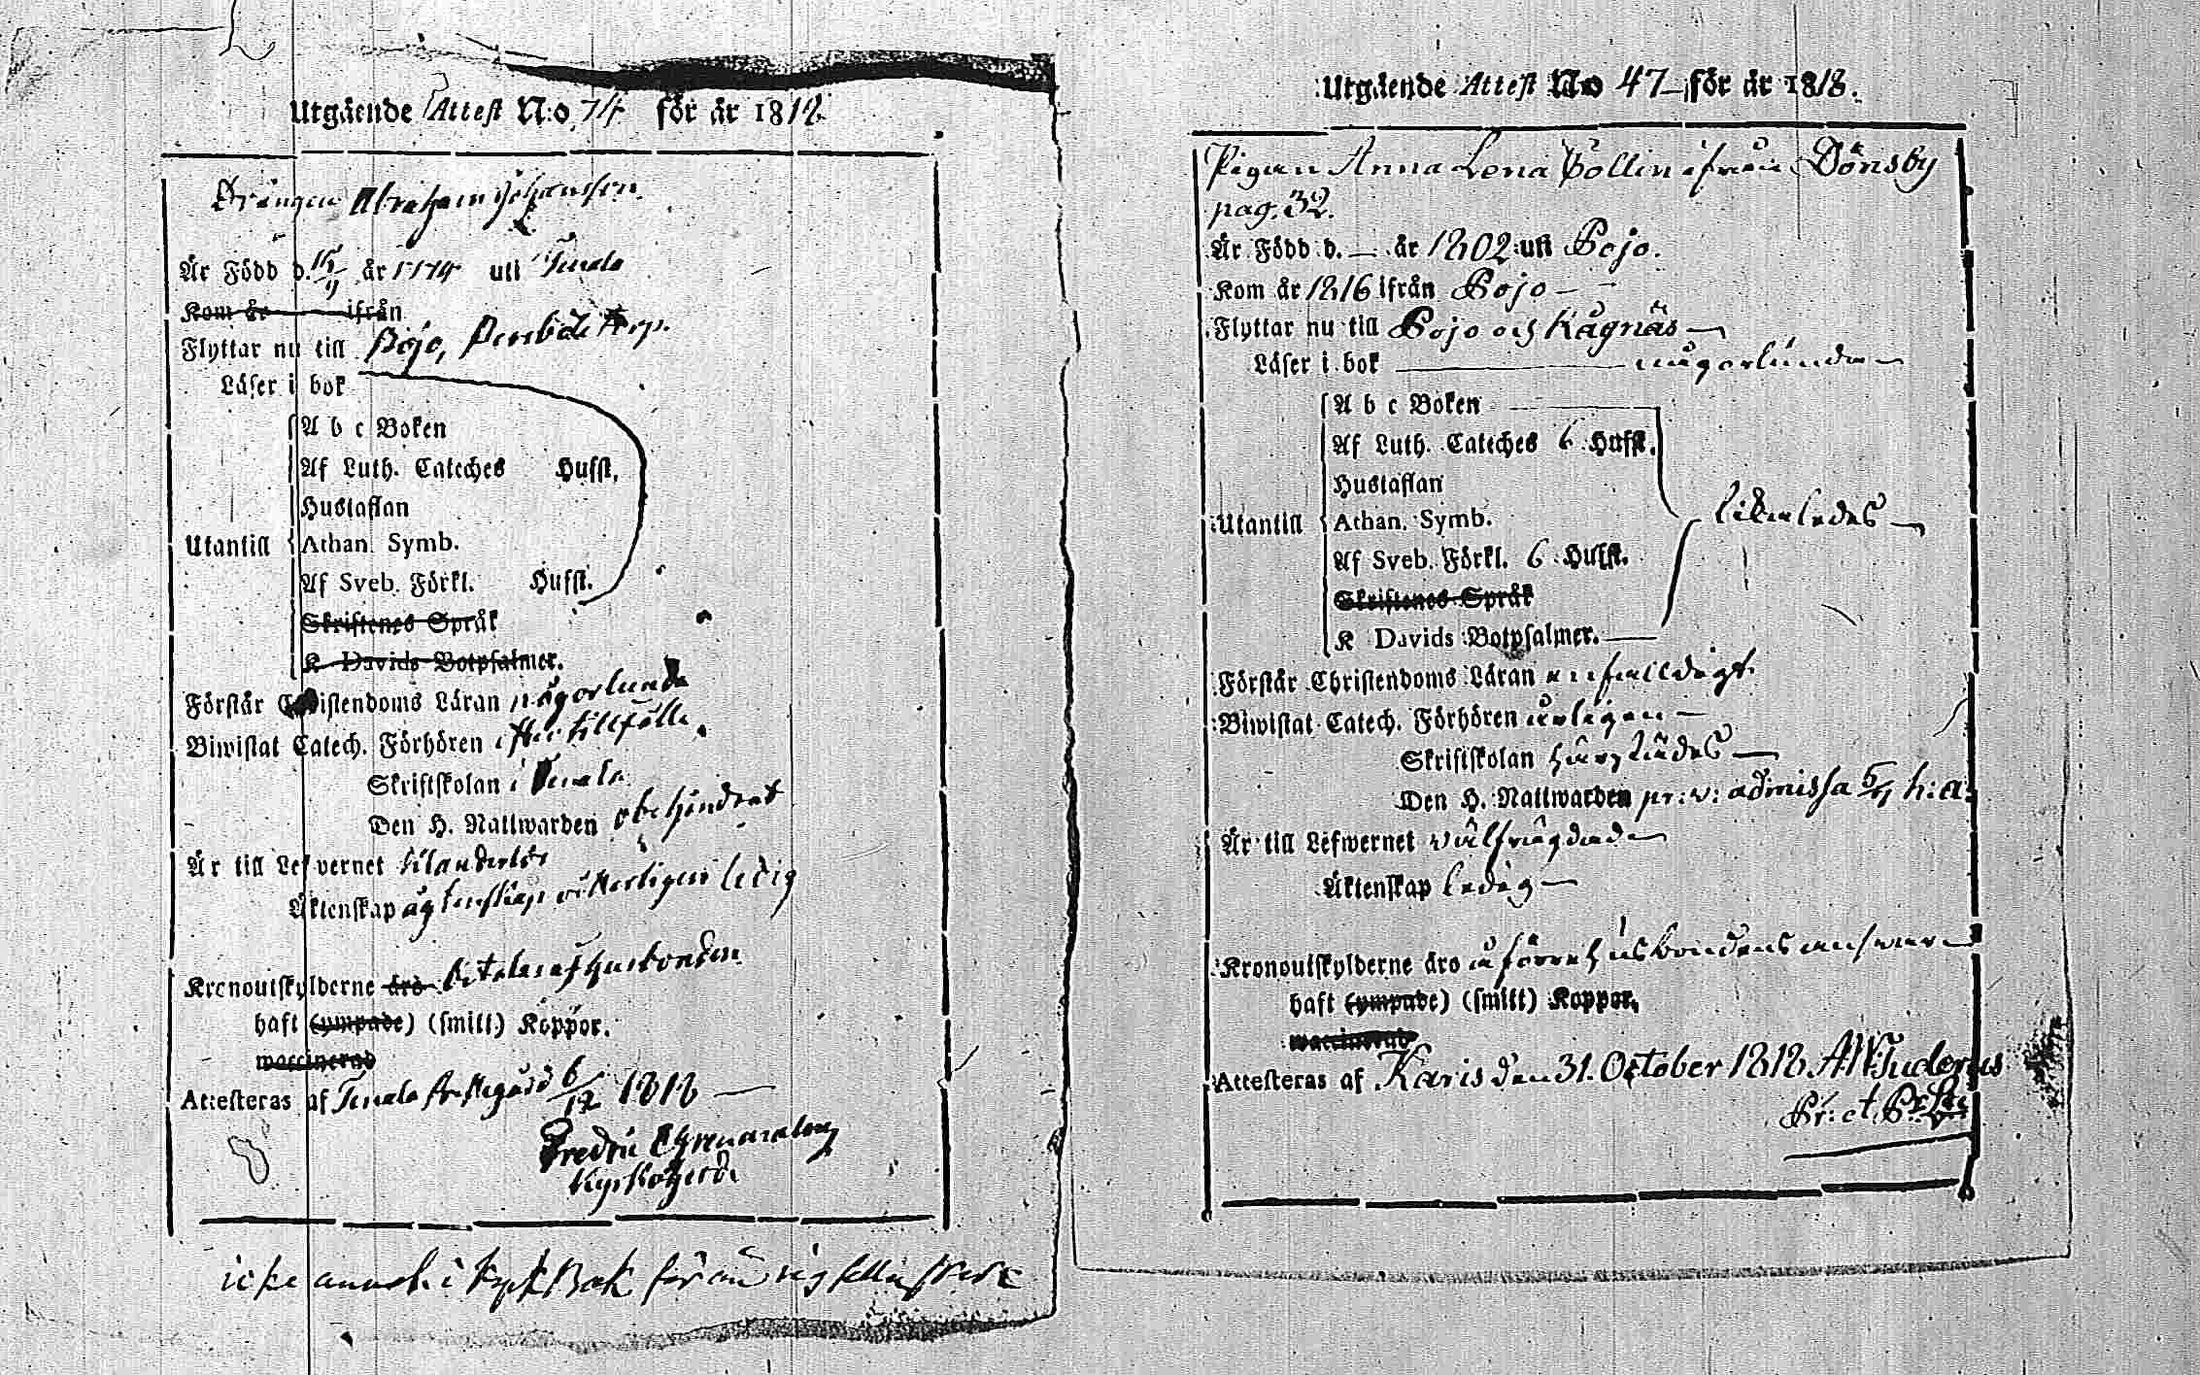 Utgående Attest N:o 74 för år 1818.
Drängen Abraham Johansson.
Är Född d. år 1774 uti Tenala
Kom år ifrån
Flyttar nu till Pojo,
Läser i bok
A b c Boken
Af Luth. Cateches Husst.
Hustaflan
Utantill Athan. Symb.
Af Sveb. Förkl. Husst.
Skriftenes Språk
K Davids Botpsalmer.
Förstår Christendoms Läran någorlunda
Biwistat Catech. Förhören efter tillfälle.
Skriftskolan i Tenala
Den H. Nattwarden obehindrat
Är till Lefvernet klanderlös
Äktenskap ledig
Kronoutskylderne äro Betalas af husbonden
haft (ympade) (smitt.) Koppor.
waccinerad
Attesteras af Tenala Prestegård 6/12 1818
Fredric
Kyrkoherde
icke i KyrkBok för
Utgående Attest N:o 47 för år 1818.
Pigan Anna Lena Bollin ifrån Dönsby
pag. 32.
Är Född d. — år 1802 uti Pojo.
Kom år 1816 ifrån Pojo —
Flyttar nu till Pojo och Kägnäs —
Läser i bok någorlunda —
A b c Boken
Af Luth. Cateches 6 Husst.
Hustaflan
Utantill Athan. Symb. likaledes —
Af Sveb. Förkl. 6 Husst.
Skriftenes Språk
K Davids Botpsalmer.
Förstår Christendoms Läran enfalldigt.
Biwistat Catech. Förhören årligen —
Skriftskolan härstädes —
Den H. Nattwarden pr: v: admissa h: a:
Är till Lefwernet välfrägdad —
Äktenskap ledig —
Kronoutskylderne äro å förre husbondens answar —
haft (ympade) (smitt) Koppor.
waccinerad
Attesteras af Karis den 31. October 1818 Tuderus
Pr: et